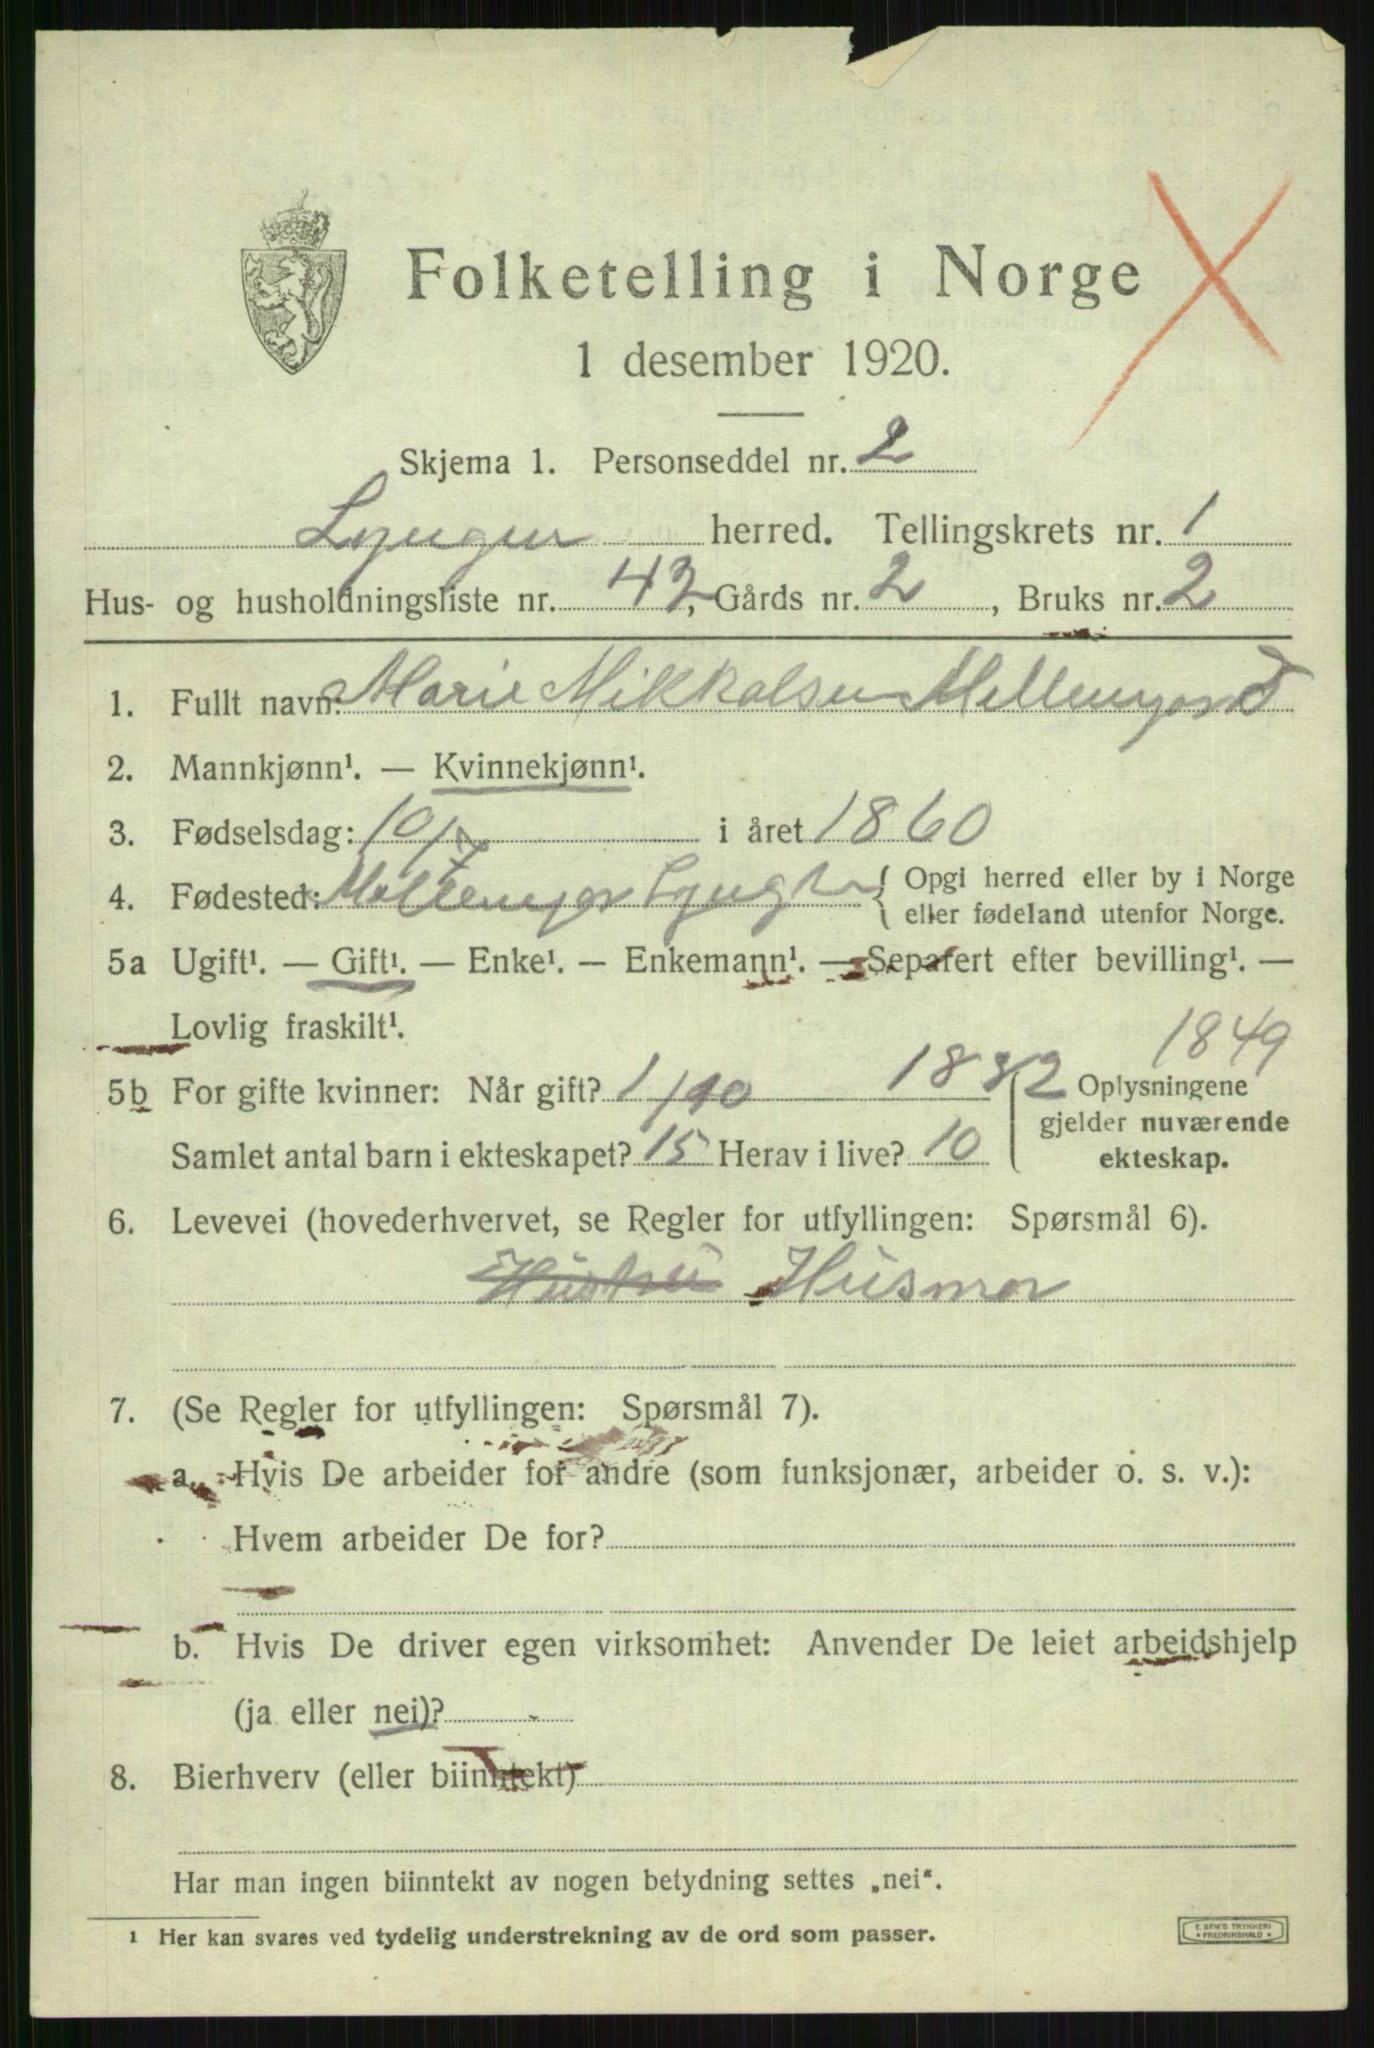 Folketelling i Norge
1 desember 1920.
Skjema 1. Personseddel nr. 2
Lyngen herred. Tellingskrets nr. 1
Hus- og husholdningsliste nr. 42, Gårds nr. 2, Bruks nr. 2
1. Fullt navn: Marie Mikkalsen
2. Mannkjønn¹. — Kvinnekjønn¹.
3. Fødselsdag: 10/7 i året 1860
4. Fødested: { Opgi herred eller by i Norge
eller fødeland utenfor Norge.
5a Ugift¹. — Gift¹. — Enke¹. — Enkemann¹. — Separert efter bevilling¹. —
Lovlig fraskilt¹.
1849
5b For gifte kvinner: Når gift? 1/10 1882 Oplysningene
gjelder nuværende
Samlet antal barn i ekteskapet? 15 Herav i live? 10 ekteskap.
6. Levevei (hovederhvervet, se Regler for utfyllingen: Spørsmål 6).
Hustru Husmor
7. (Se Regler for utfyllingen: Spørsmål 7).
a. Hvis De arbeider for andre (som funksjonær, arbeider o. s. v.):
Hvem arbeider De for?
b. Hvis De driver egen virksomhet: Anvender De leiet arbeidshjelp
(ja eller nei)?
8. Bierhverv (eller biinntekt)
Har man ingen biinntekt av nogen betydning settes „nei“.
¹ Her kan svares ved tydelig understrekning av de ord som passer.
E. SEM'S TRYKKERI
* FREDRIKSHALD *